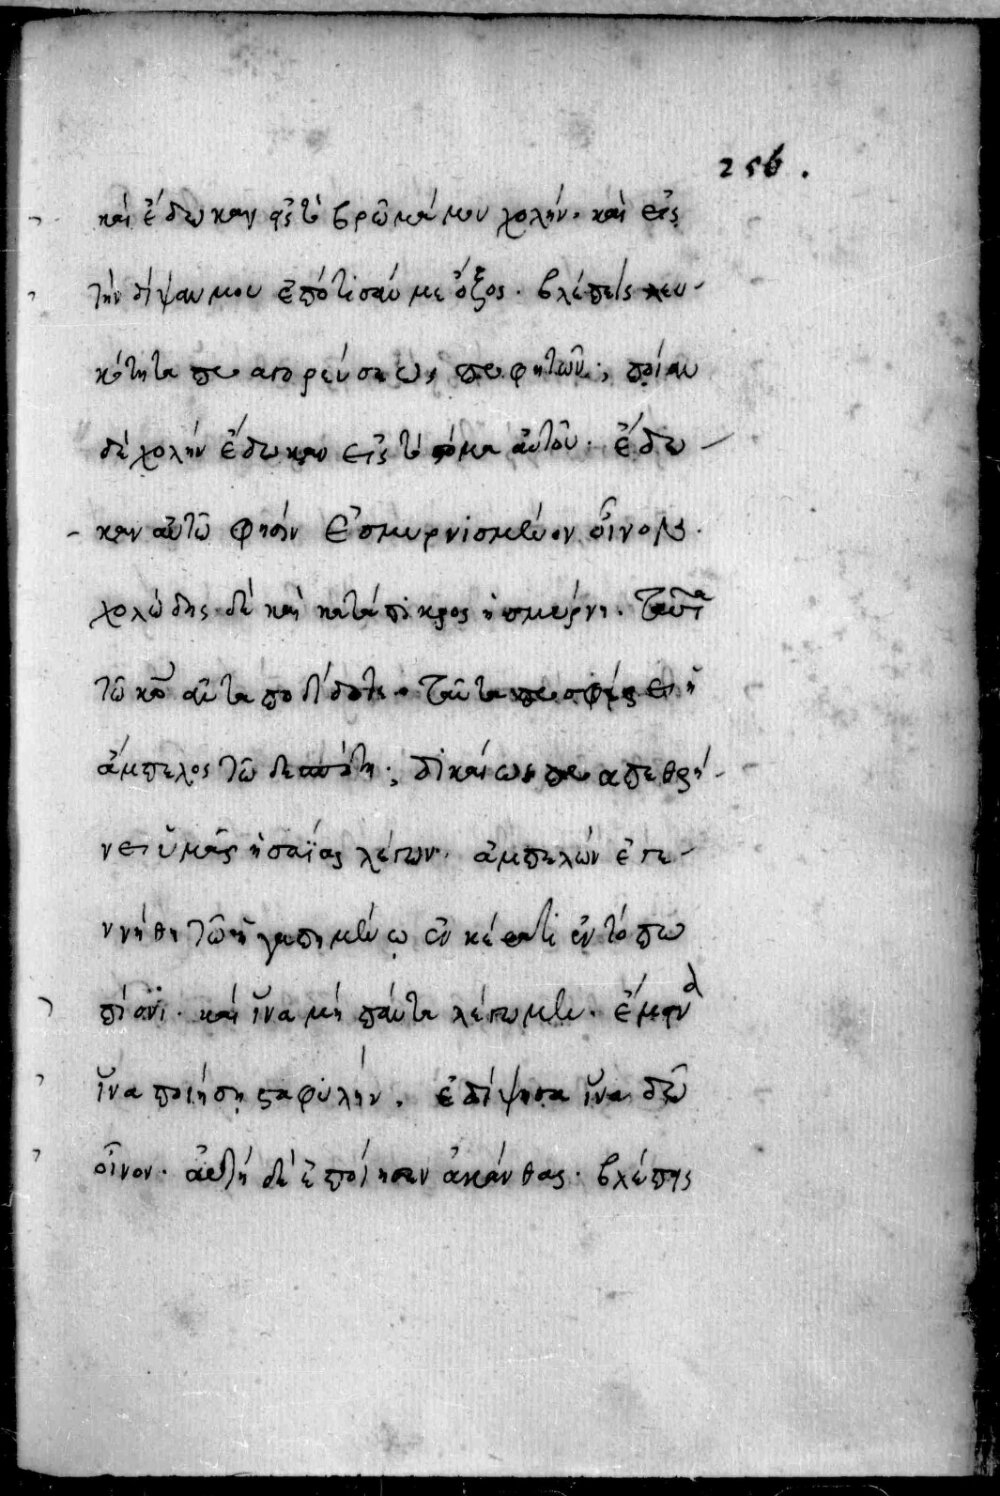 256.
καὶ ἔδωκαν εἰς τὸ βρῶμά μου χολὴν. καὶ εἰς
τὴν δίψαν μου ἐπότισάν με ὄξος. βλέπεις λευ-
κότητα προαγορεύσεως προφητῶν; ποίαν
δὲ χολὴν ἔδωκαν εἰς τὸ στόμα αὐτοῦ. ἔδω-
καν αὐτῶ φησὶν ἐσμυρνισμένον οἶνον.
χολώδης δὲ καὶ κατάπικρος ἡ σμύρνη. ταῦτα
τῶ κῶ ἀνταποδίδοτε. ταῦτα προσφέρει ἡ
ἄμπελος τῶ δεσπότη; δικαίως προαπεθρή-
νει ὑμᾶς ἡσαΐας λέγων. ἀμπελὼν ἐγε-
ννήθη τῶ ἠγαπημένω ἐν κέρατι ἐν τόπω
πίονι. καὶ ἵνα μὴ πάντα λέγωμεν. ἔμεινα
ἵνα ποιήση σταφυλὴν. ἐδίψησα ἵνα δῶ
οἶνον. αὐτὴ δὲ ἐποίησεν ἀκάνθας. βλέπεις